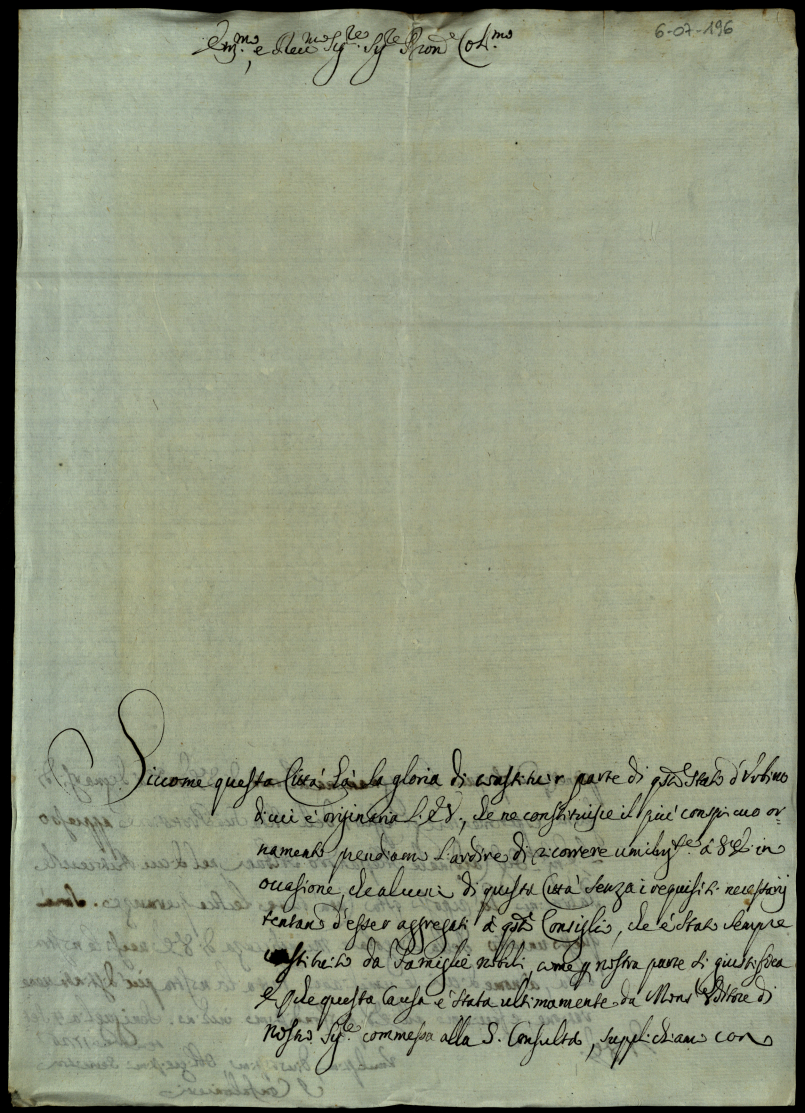 6-07-196
Em.mo, e Reu.mo Sig.re Sig.re Pron.e Col.mo
Siccome questa Città hà la gloria di costituir parte di q.sto Stato d'Urbino
di cui è originaria l'E.V., che ne constituisce il più conspicuo or-
namento prendiam l'ardire di ricorrere umilm.te à V.E. in
occasione, che alcuni di questa Città senza i requisiti necessarij
tentano d'esser aggregati à q.sto Consiglio, che è stato sempre
costituito da Famiglie nobili, come p nostra parte si giustifica
E p che questa Causa è stata ultimamente da Mons.re Uditore di
Nostro Sig.re commessa alla S. Consulta, supplichiamo con